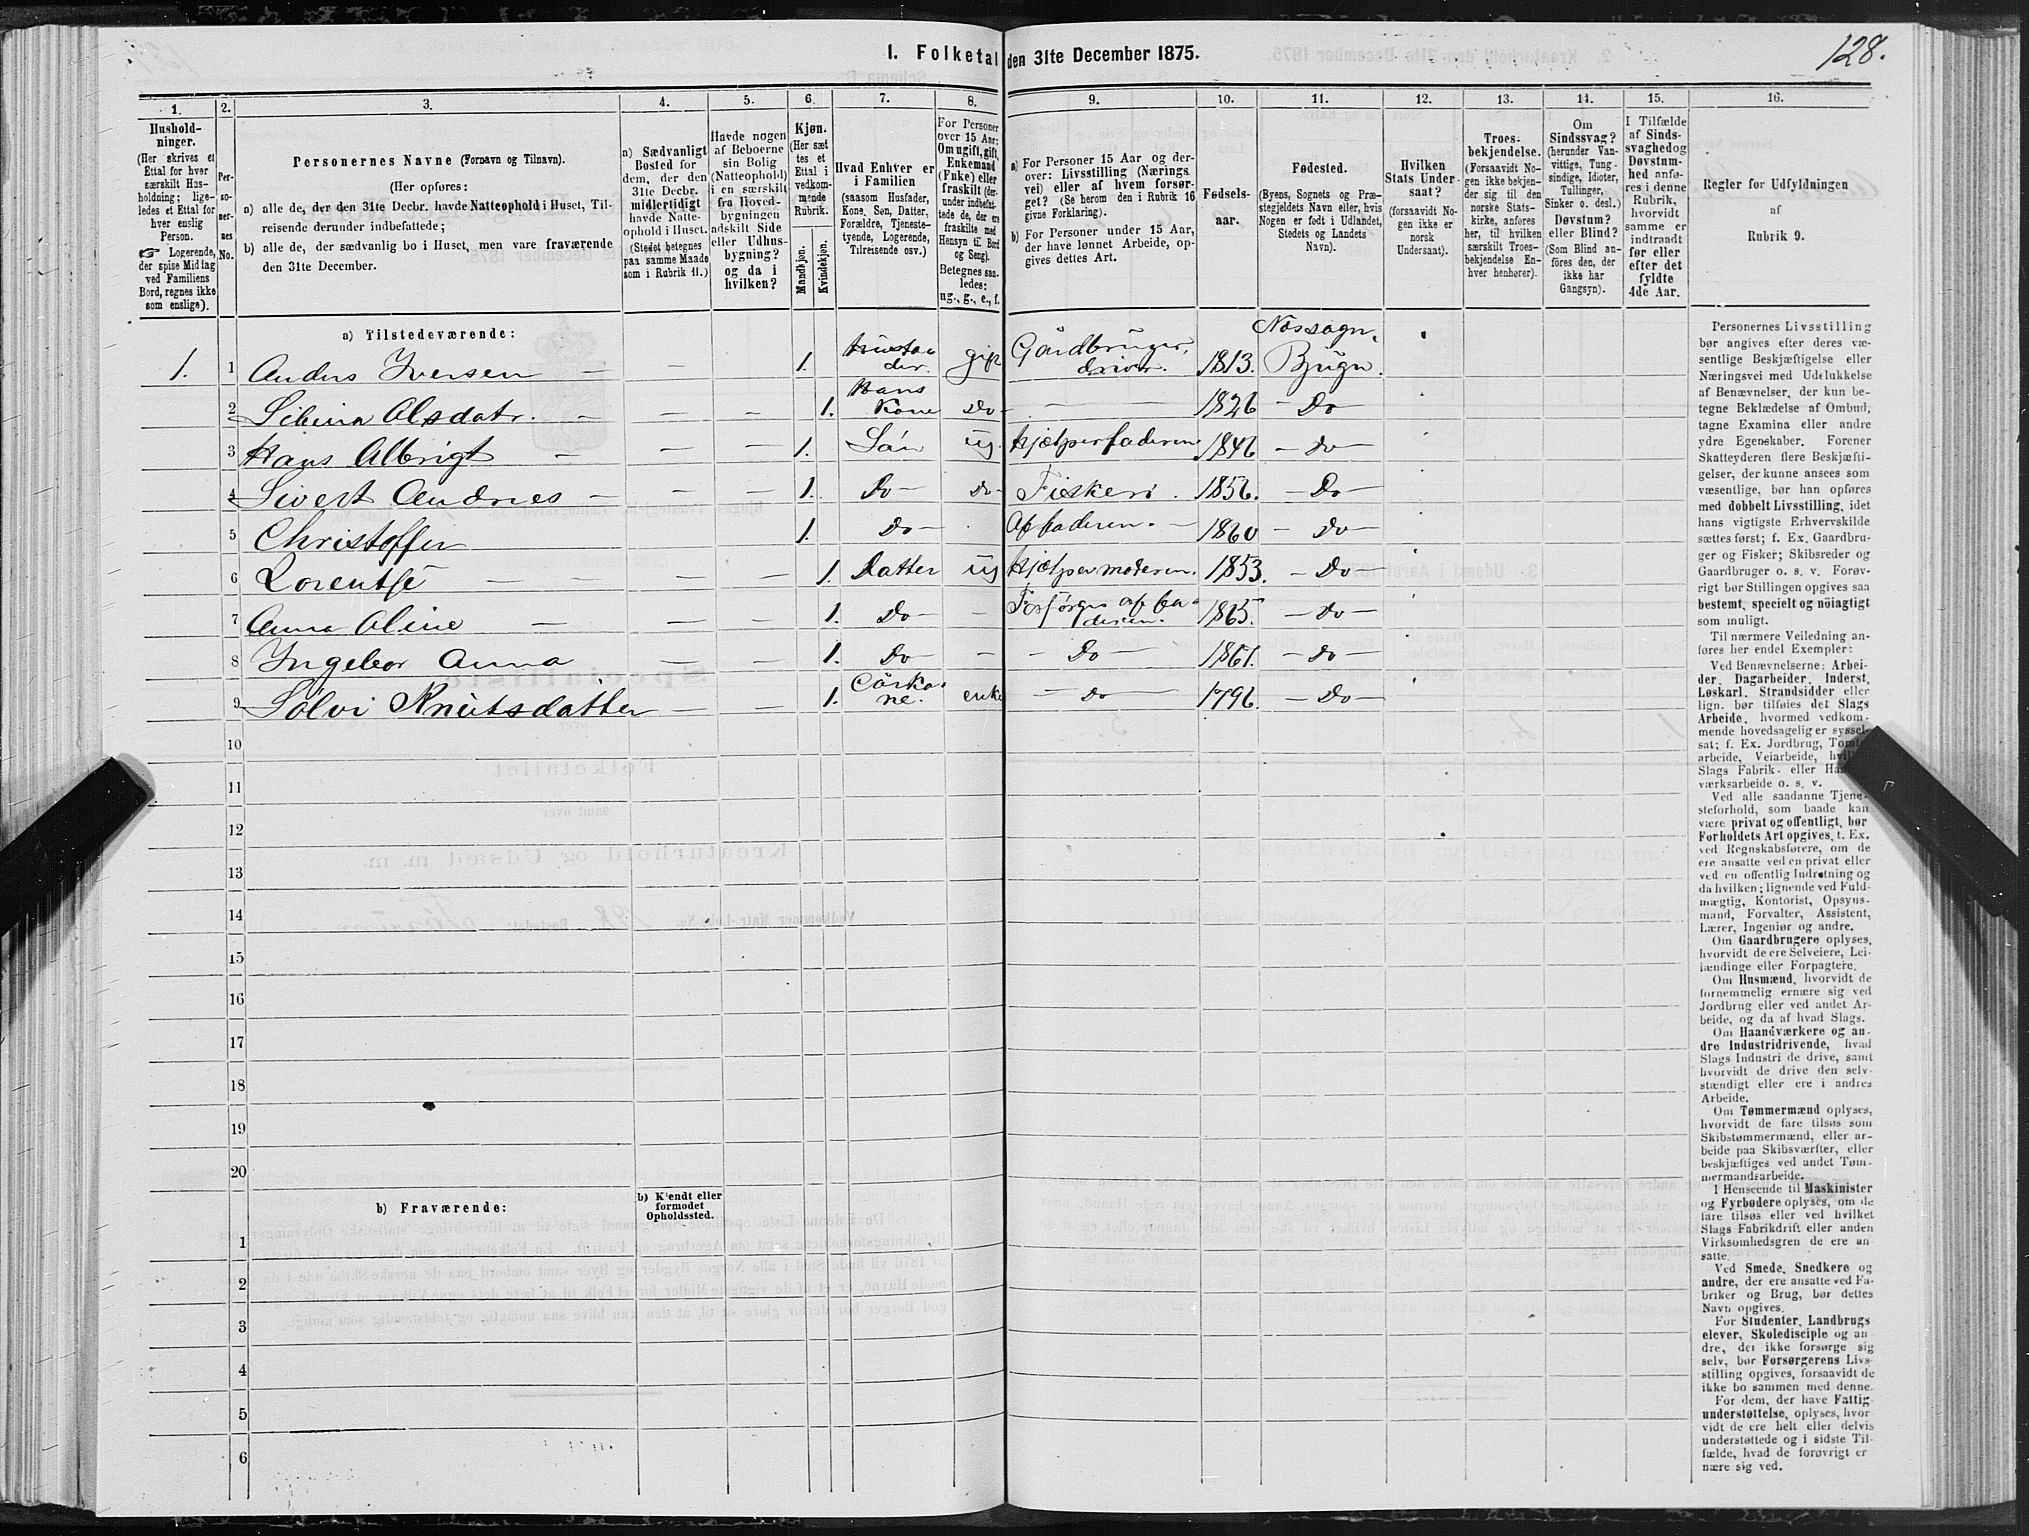 128.
1. Folketal den 31te December 1875.
1. 2. 3. 4. 5. 6. 7. 8. 9. 10. 11. 12. 13. 14. 15. 16.
Hushold-
ninger.
(Her skrives et
Ettal for hver
særskilt Hus-
holdning; lige-
ledes et Ettal for
hver enslig
Person.
☞ Logerende,
der spise Middag
ved Familiens
Bord, regnes ikke
som enslige).
Per-
so-
ner-
nes
No.
Personernes Navne (Fornavn og Tilnavn).
(Her opføres:
a) alle de, der den 31te Decbr. havde Natteophold i Huset, Til-
reisende derunder indbefattede;
b) alle de, der sædvanlig bo i Huset, men vare fraværende
den 31te December.
a) Sædvanligt
Bosted for
dem, der den
31te Decbr.
midlertidigt
havde Natte-
ophold i Huset.
(Stedet betegnes
paa samme Maade
som i Rubrik 11.)
Havde nogen
af Beboerne
sin Bolig
(Natteophold)
i en særskilt
fra Hoved-
bygningen
adskilt Side
eller Udhus-
bygning?
og da i
hvilken?
Kjøn.
(Her sæt
tes et
Ettal i
vedkom-
mende
Rubrik.
Mandkjøn.
Kvindekjøn.
Hvad Enhver er
i Familien
(saasom Husfader,
Kone, Søn, Datter,
Forældre, Tjeneste-
tyende, Logerende,
Tilreisende osv.)
For Personer
over 15 Aar:
Om ugift, gift,
Enkemand
(Enke) eller
fraskilt (der-
under indbefat-
tede de, der ere
fraskilte med
Hensyn til Bord
og Seng).
Betegnes saa-
ledes:
ug., g., e., f.
a) For Personer 15 Aar og der-
over: Livsstilling (Nærings
vei) eller af hvem forsør-
get? (Se herom den i Rubrik 16
givne Forklaring).
b) For Personer under 15 Aar,
der have lønnet Arbeide, op-
gives dettes Art.
Fødsels-
aar.
Fødested.
(Byens, Sognets og Præ-
stegjeldets Navn eller, hvis
Nogen er født i Udlandet,
Stedets og Landets
Navn).
Hvilken
Stats Under-
saat?
(forsaavidt No-
gen ikke er
norsk
Undersaat).
Troes-
bekjendelse.
(Forsaavidt No-
gen ikke bekjen-
der sig til den
norske Stats-
kirke, anføres
her, til hvilken
særskilt Troes-
bekjendelse En-
hver henhører).
Om
Sindssvag?
(herunder Van-
vittige, Tung-
sindige, Idioter,
Tullinger,
Sinker o. desl.)
Døvstum?
eller Blind?
(Som Blind an-
föres den, der
ikke har
Gangsyn).
I Tilfælde
af Sinds-
svaghed og
Døvstum-
hed anfø-
res i denne
Rubrik,
hvorvidt
samme er
indtraadt
før eller
efter det
fyldte
4de Aar.
Regler for Udfyldningen
af
Rubrik 9.
a) Tilstedeværende:
1. 1 Anders Iversen — — 1. Husfa
der. gift Gårdbruger,
driver. 1813. Næssogn,
Bjugn.
2 Silena Olsdatr. — — — 1. Hans
Kone Do — — 1826 — Do —
3 Hans Albrigt — — — 1. Sön ug. Hjelper faderen 1846 — Do —
4 Sivert Andreas — — — 1. Do — Do — Fiskeri. 1856. — Do —
5 Christoffer 1. Do — Af faderen. — 1860 — Do —
6 Lorentse — — — 1. Datter ug Hjelper moderen. 1853. — Do —
7 Anna Oline — — — 1. Do — — Forsörges af fa-
deren. 1865. — Do —
8 Ingebor Anna — — 1. Do — — — Do — 1867. — Do —
9 Solvi Knutsdatter — — 1. Cårko-
ne. enke — Do — 1796. — Do —
10
11
12
13
14
15
16
17
18
19
20
b) Fraværende:
b) Kjendt eller
formodet
Opholdssted.
1
2
3
4
5
6
Personernes Livsstilling
bør angives efter deres væ-
sentlige Beskjæftigelse eller
Næringsvei med Udelukkelse
af Benævnelser, der kun be-
tegne Beklædelse af Ombud,
tagne Examina eller andre
ydre Egenskaber. Forener
Skatteyderen flere Beskjæfti-
gelser, der kunne ansees som
væsentlige, bør han opføres
med dobbelt Livsstilling, idet
hans vigtigste Erhvervskilde
sættes først; f. Ex. Gaardbru-
ger og Fisker; Skibsreder og
Gaardbruger o. s. v. Forøv-
rigt bør Stillingen opgives saa
bestemt, specielt og nöiagtigt
som muligt.
Til nærmere Veiledning an-
føres her endel Exempler:
Ved Benævnelserne: Arbei-
der, Dagarbeider, Inderst,
Løskarl, Strandsidder eller
lign. bør tilføies det Slags
Arbeide, hvormed vedkom-
mende hovedsageliger syssel-
sat; f. Ex. Jordbrug, Tomt-
arbeide, Veiarbeide, hvilket
Slags Fabrik- eller Haand-
værksarbeide o. s. v.
Ved alle saadanne Tjene-
steforhold, som baade kan
være privat og offentligt, bør
Forholdets Art opgives, t. Ex.
ved Regnskabsførere, om de
ere ansatte ved en privat eller
ved en offentlig Indretning og
da hvilken; lignende ved Fuld-
mægtig, Kontorist, Opsyns-
mand, Forvalter, Assistent,
Lærer, Ingeniør og andre.
Om Gaardbrugere oplyses,
hvorvidt de ere Selveiere, Lei-
lændinge eller Forpagtere.
Om Husmænd, hvorvidt de
fornemmelig ernære sig ved
Jordbrug eller ved andet Ar-
beide, og da af hvad Slags.
Om Haandværkere og an-
dre Industridrivende, hvad
Slags Industri de drive, samt
hvorvidt de drive den selv-
stændigt eller ere i andres
Arbeide.
Om Tømmermænd oplyses,
hvorvidt de fare tilsøs som
Skibstømmermænd, eller ar-
beide paa Skibsværfter, eller
beskjæftiges ved andet Tøm-
mermandsarbeide.
I Henseende til Maskinister
og Fyrbødere oplyses, om de
fare tilsøs eller ved hvilket
Slags Fabrikdrift eller anden
Virksomhedsgren de ere an-
satte.
Ved Smede, Snedkere og
andre, der ere ansatte ved Fa-
briker og Brug, bør dettes
Navn opgives.
For Studenter, Landbrugs
elever, Skoledisciple og an-
dre, der ikke forsørge sig
selv, bør Forsørgerens Livs-
stilling opgives, forsaavidt de
ikke bo sammen med denne.
For dem, der have Fattig-
understøttelse, oplyses, hvor
vidt de ere helt eller delvis
understøttede og i sidste Til-
fælde, hvad de forøvrigt er
nære sig ved.